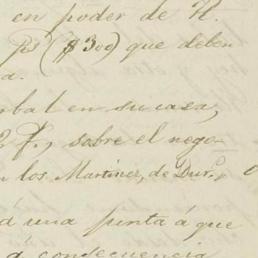 en poder de H.
Ps ($300) que deben
a.
rbal en su casa,
P., sobre el nego-
n los Martinez, de Dur.,
d una junta á que
a consecuencia